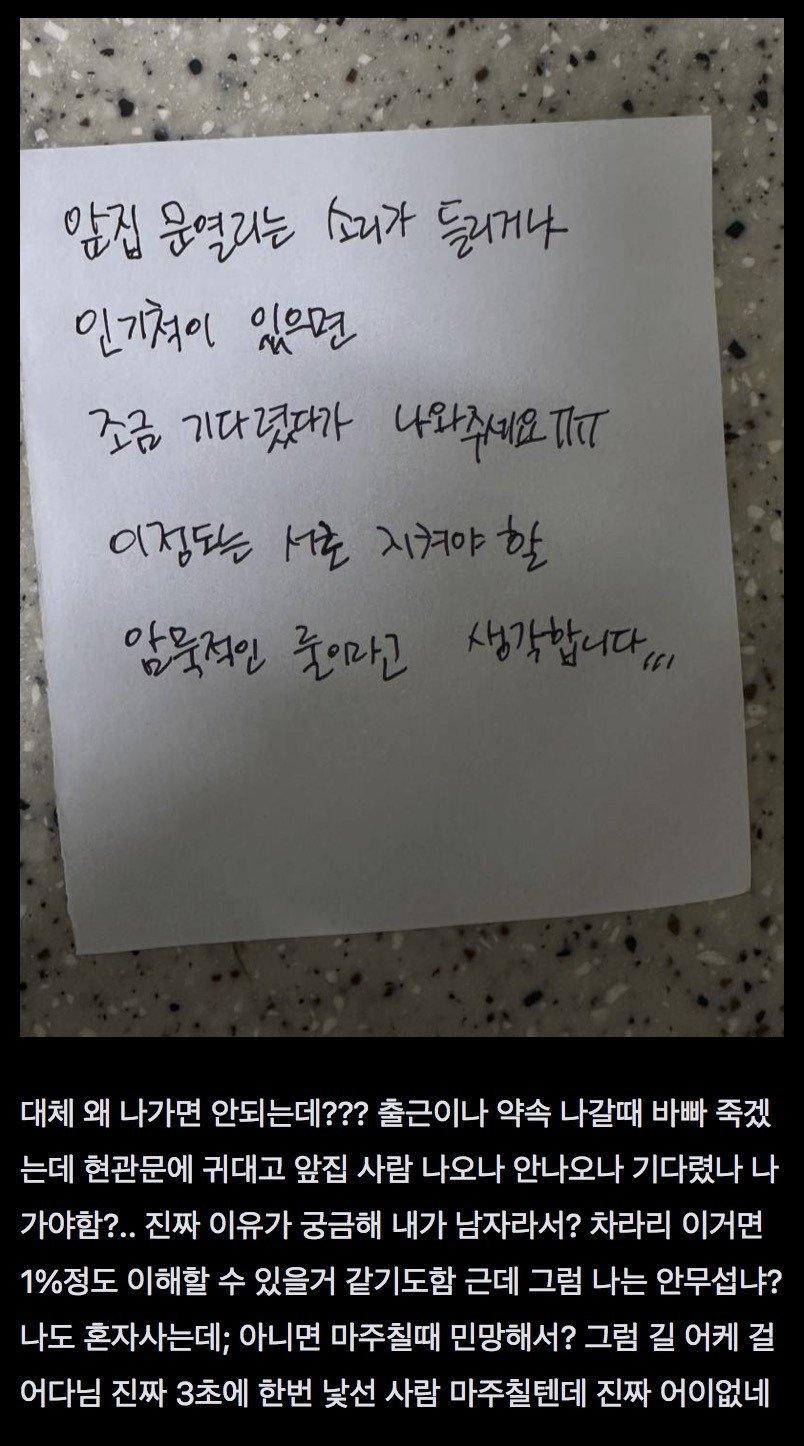 앞집 문열리는 소리가 들리거나
인기척이 있으면
조금 기다렸다가 나와주세요ㅠㅠ
이정도는 서로 지켜야 할
암묵적인 룰이라고 생각합니다,,,
대체 왜 나가면 안되는데??? 출근이나 약속 나갈때 바빠 죽겠
는데 현관문에 귀대고 앞집 사람 나오나 안나오나 기다렸나 나
가야함?.. 진짜 이유가 궁금해 내가 남자라서? 차라리 이거면
1%정도 이해할 수 있을거 같기도함 근데 그럼 나는 안무섭냐?
나도 혼자사는데; 아니면 마주칠때 민망해서? 그럼 길 어케 걸
어다님 진짜 3초에 한번 낯선 사람 마주칠텐데 진짜 어이없네